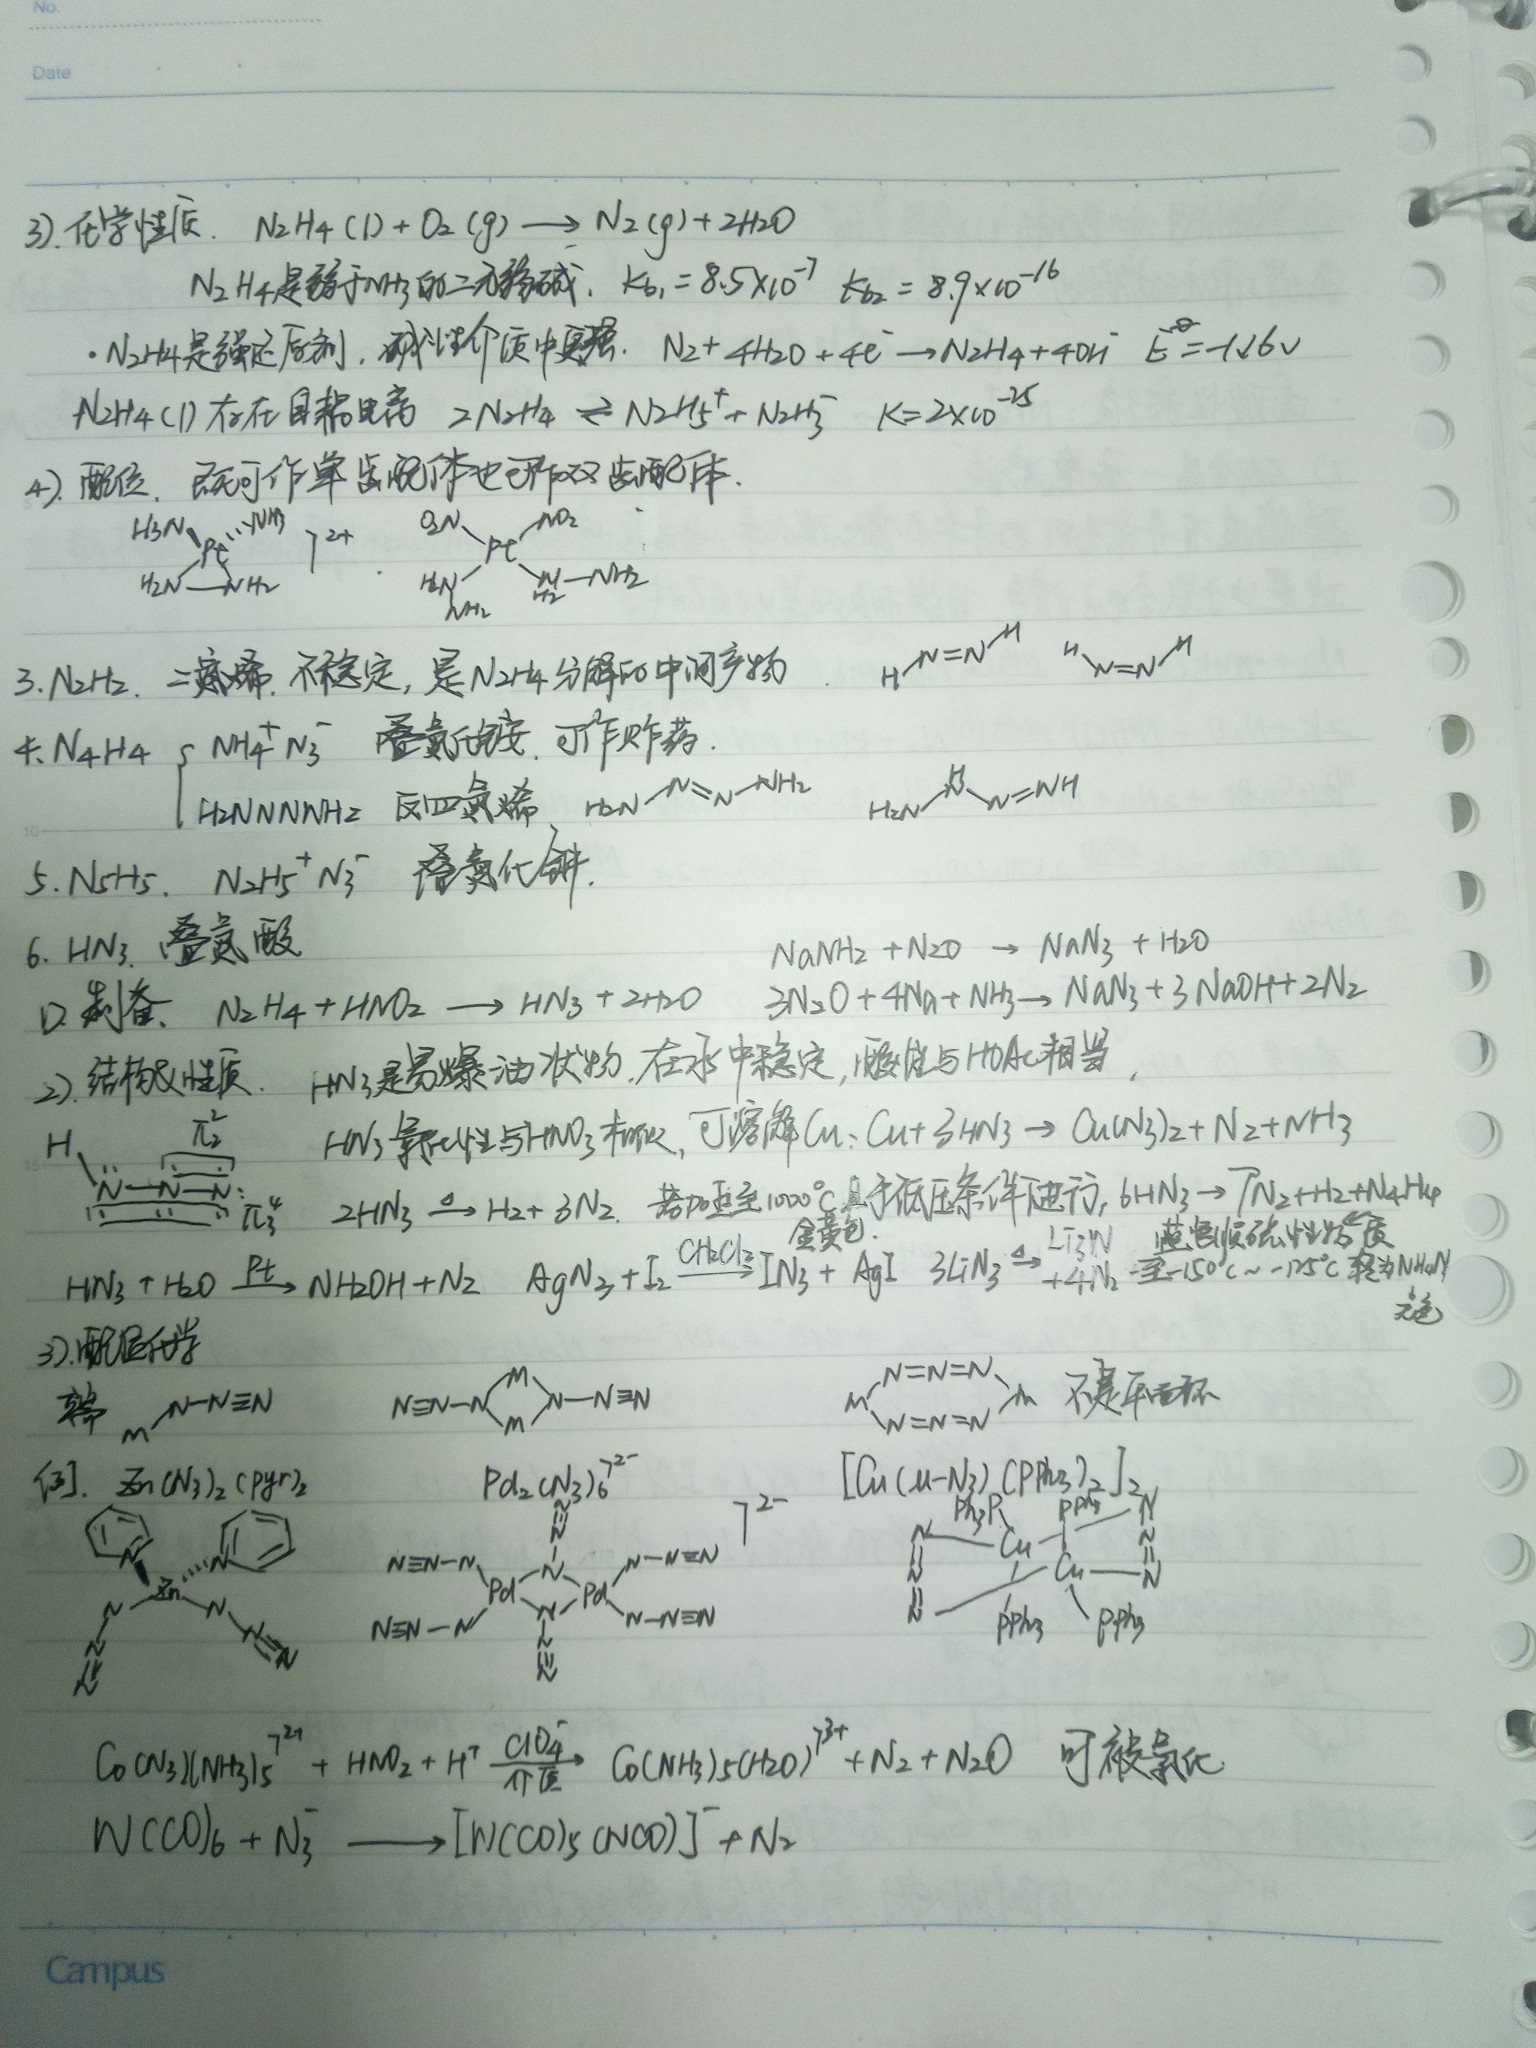 No.
Date
3). 化学性质. N2H4(l) + O2(g) → N2(g) + 2H2O
N2H4是弱于NH3的二元弱碱. Kb1 = 8.5×10^-7 Kb2 = 8.9×10^-16
·N2H4是强还原剂, 碱性介质中更强. N2 + 4H2O + 4e^- → N2H4 + 4OH^- E^θ = -1.16V
N2H4(l)存在自耦电离 2N2H4 ⇌ N2H5^+ + N2H3^- K = 2×10^-25
4). 配位. 既可作单齿配体也可作双齿配体.
H3N NH3 Pt H2N—NH2 ]^2+
O2N NO2 Pt H2N NH2 N H2 —NH2
3. N2H2. 二氮烯. 不稳定, 是N2H4分解的中间产物. H N=N H H N=N H
4. N4H4 { NH4^+ N3^- 叠氮化铵. 可作炸药.
H2NNNNH2 反四氮烯 H2N N=N NH2 H2N H N N=NH
5. N5H5. N2H5^+ N3^- 叠氮化肼.
6. HN3. 叠氮酸
NaNH2 + N2O → NaN3 + H2O
1). 制备. N2H4 + HNO2 → HN3 + 2H2O 3N2O + 4Na + NH3 → NaN3 + 3NaOH + 2N2
2). 结构及性质. HN3是易爆油状物. 在水中稳定, 酸性与HOAc相当,
H N—N—N: π2^2 π3^4
HN3氧化性与HNO3相似, 可溶解Cu: Cu + 3HN3 → Cu(N3)2 + N2 + NH3
2HN3 △→ H2 + 3N2. 若加至1000℃且于低压条件下进行, 6HN3 → 7N2 + H2 + N4H4
HN3 + H2O Pt→ NH2OH + N2 AgN3 + I2 CH2Cl2→ IN3 + AgI 金黄色. 3LiN3 △→ Li3N + 4N2
蓝色顺磁性物质
至-150℃~-125℃ 转为NH4N3
无色
3). 配位化学
M N—N≡N N≡N—N M M N—N≡N M N=N=N M N=N=N 不是平面环
例. Zn(N3)2(pyr)2 Pd2(N3)6^2- [Cu(μ-N3)(PPh3)2]2
N Zn N N N N N N N
N≡N—N N≡N—N Pd N N Pd N—N≡N N—N≡N ]^2-
Ph3P PPh3 Cu Cu PPh3 PPh3 N N N N N N
Co(N3)(NH3)5^2+ + HNO2 + H^+ ClO4^- 介质→ Co(NH3)5(H2O)^3+ + N2 + N2O 可被氧化
W(CO)6 + N3^- → [W(CO)5(NCO)]^- + N2
Campus